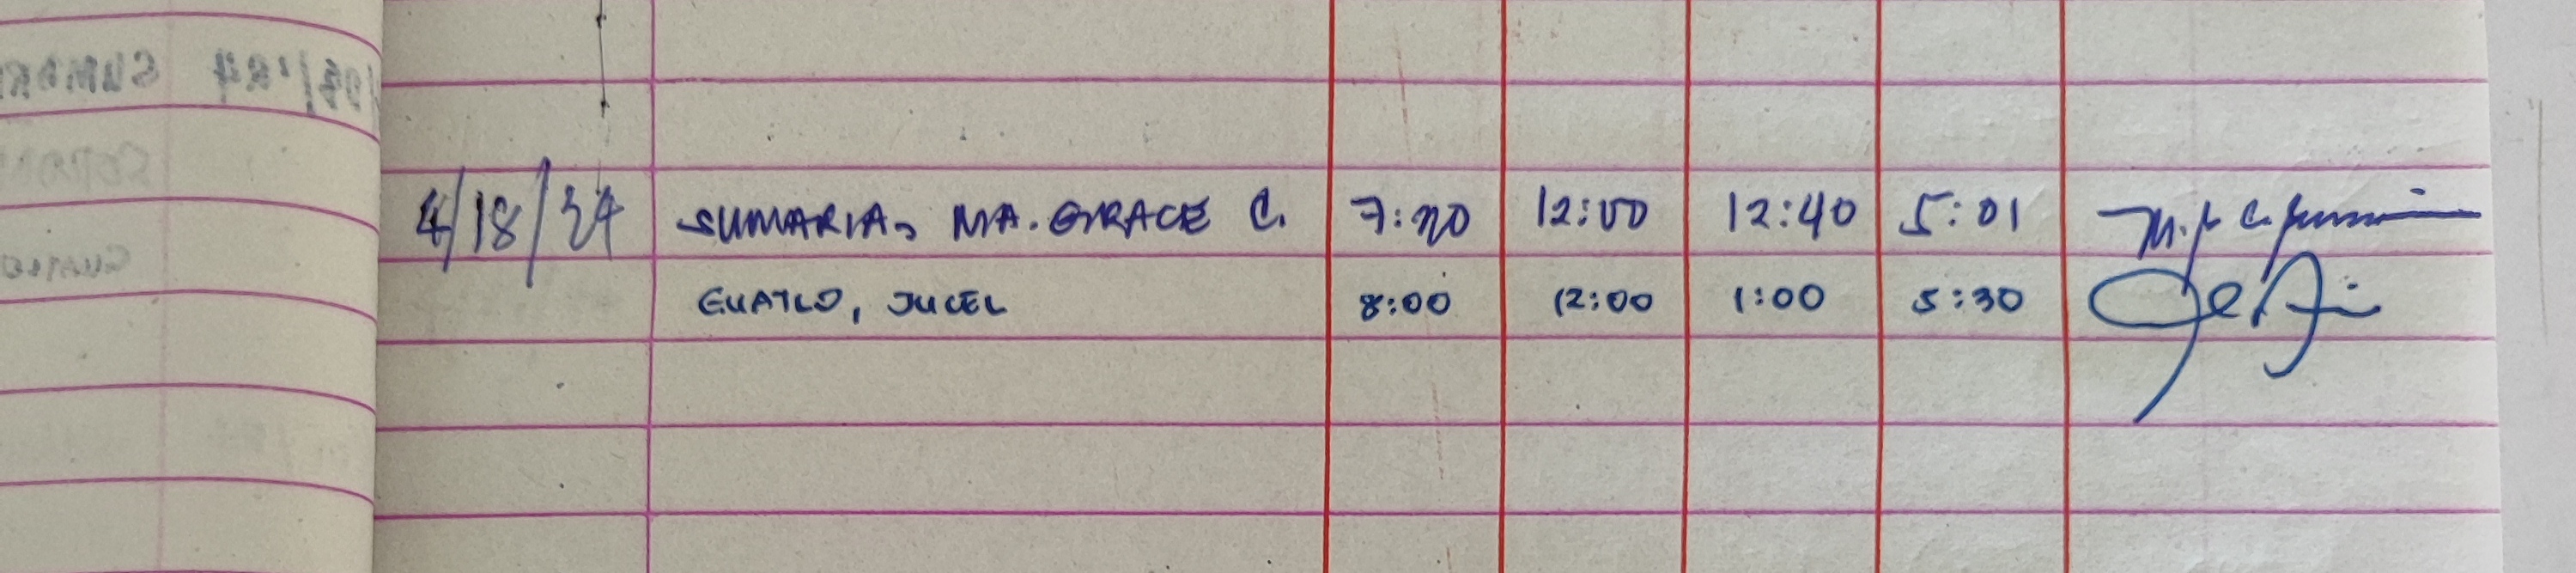 4/18/24 SUMARIA, MA. GRACE C. 7:20 12:00 12:40 5:01
GUATLO, JUCEL 8:00 12:00 1:00 5:30